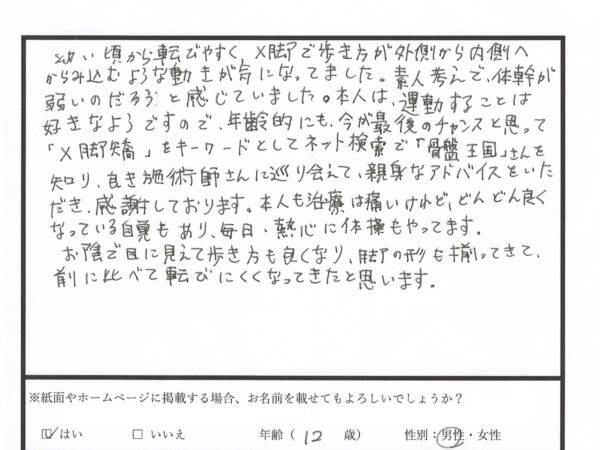 幼い頃から転びやすく、X脚で歩き方が外側から内側へ
からみ込むような動きが気になってました。素人考えで、体幹が
弱いのだろうと感じていました。本人は、運動することは
好きなようですので、年齢的にも、今が最後のチャンスと思って
「X脚矯」をキーワードとしてネット検索で「骨盤王国」さんを
知り、良き施術師さんに巡り会えて、親身なアドバイスをいた
だき、感謝しております。本人も治療は痛いけれど、どんどん良く
なっている自覚もあり、毎日、熱心に体操もやってます。
お陰で目に見えて歩き方も良くなり、脚の形も揃ってきて、
前に比べて転びにくくなってきたと思います。
※紙面やホームページに掲載する場合、お名前を載せてもよろしいでしょうか？
☑はい □いいえ 年齢（ 12 歳） 性別：男性・女性